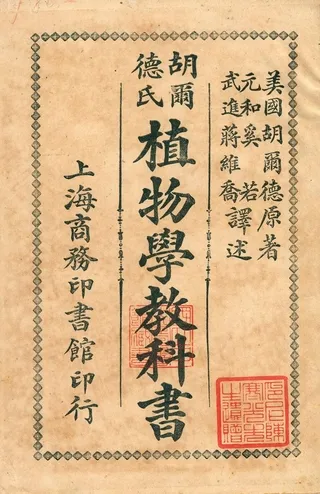 美國胡爾德原著
元和奚若
武進蔣維喬
譯述
胡爾
德氏
植物學教科書
上海商務印書館印行